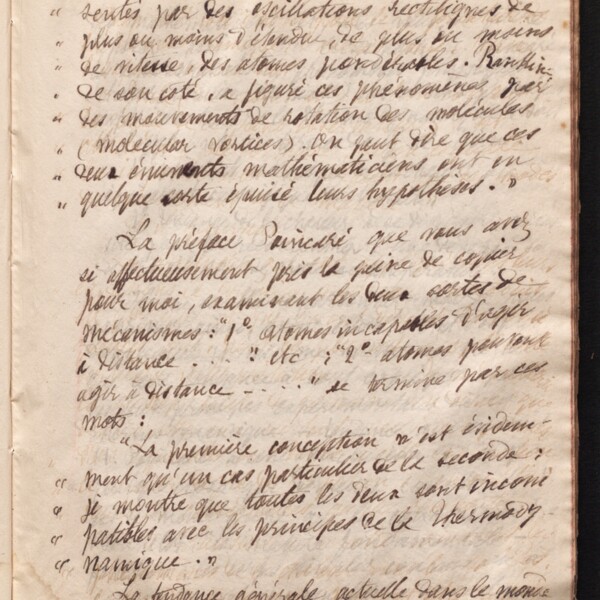 " sentés par des oscillations rectilignes de
" plus ou moins d'étendue, de plus ou moins
" de vitesse, des atomes pondérables. Rankine
" de son coté, a figuré ces phénomènes par
" des mouvements de rotation des molécules
" (molecular vortices). On peut dire que ces
" deux éminents mathématiciens ont en
" quelque sorte épuisé leurs hypothèses. "
La préface Poincaré que vous avez
si affectueusement pris la peine de copier
pour moi, examinant les deux sortes de
mécanismes : "1° atomes incapables d'agir
à distance . . . " etc ; "2° atomes pouvant
agir à distance - . . . " se termine par ces
mots :
"La première conception n'est évidem-
" ment qu'un cas particulier de la seconde ;
" je montre que toutes les deux sont incom
" patibles avec les principes de la Thermody-
" namique. "
La tendance générale actuelle dans le monde